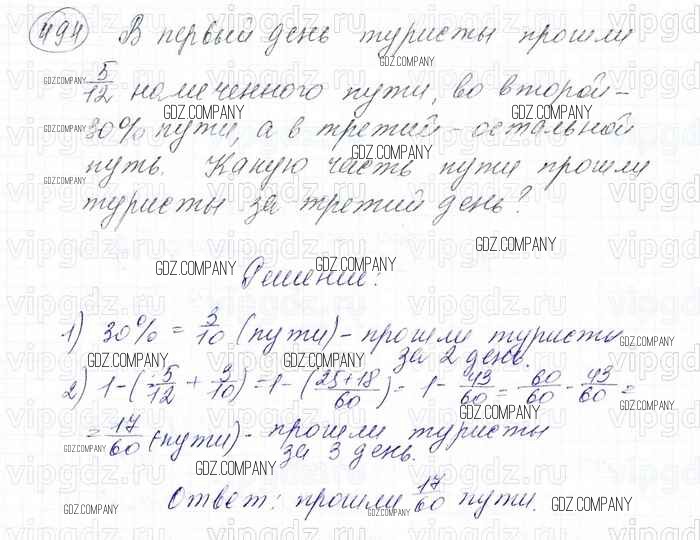 494 В первый день туристы прошли
5/12 намеченного пути, во второй -
30% пути, а в третий - остальной
путь. Какую часть пути прошли
туристы за третий день?
Решение:
1) 30% = 3/10 (пути) - прошли туристы
за 2 день.
2) 1 - (5/12 + 3/10) = 1 - (25+18/60) = 1 - 43/60 = 60/60 - 43/60 =
= 17/60 (пути) - прошли туристы
за 3 день.
Ответ: прошли 17/60 пути.